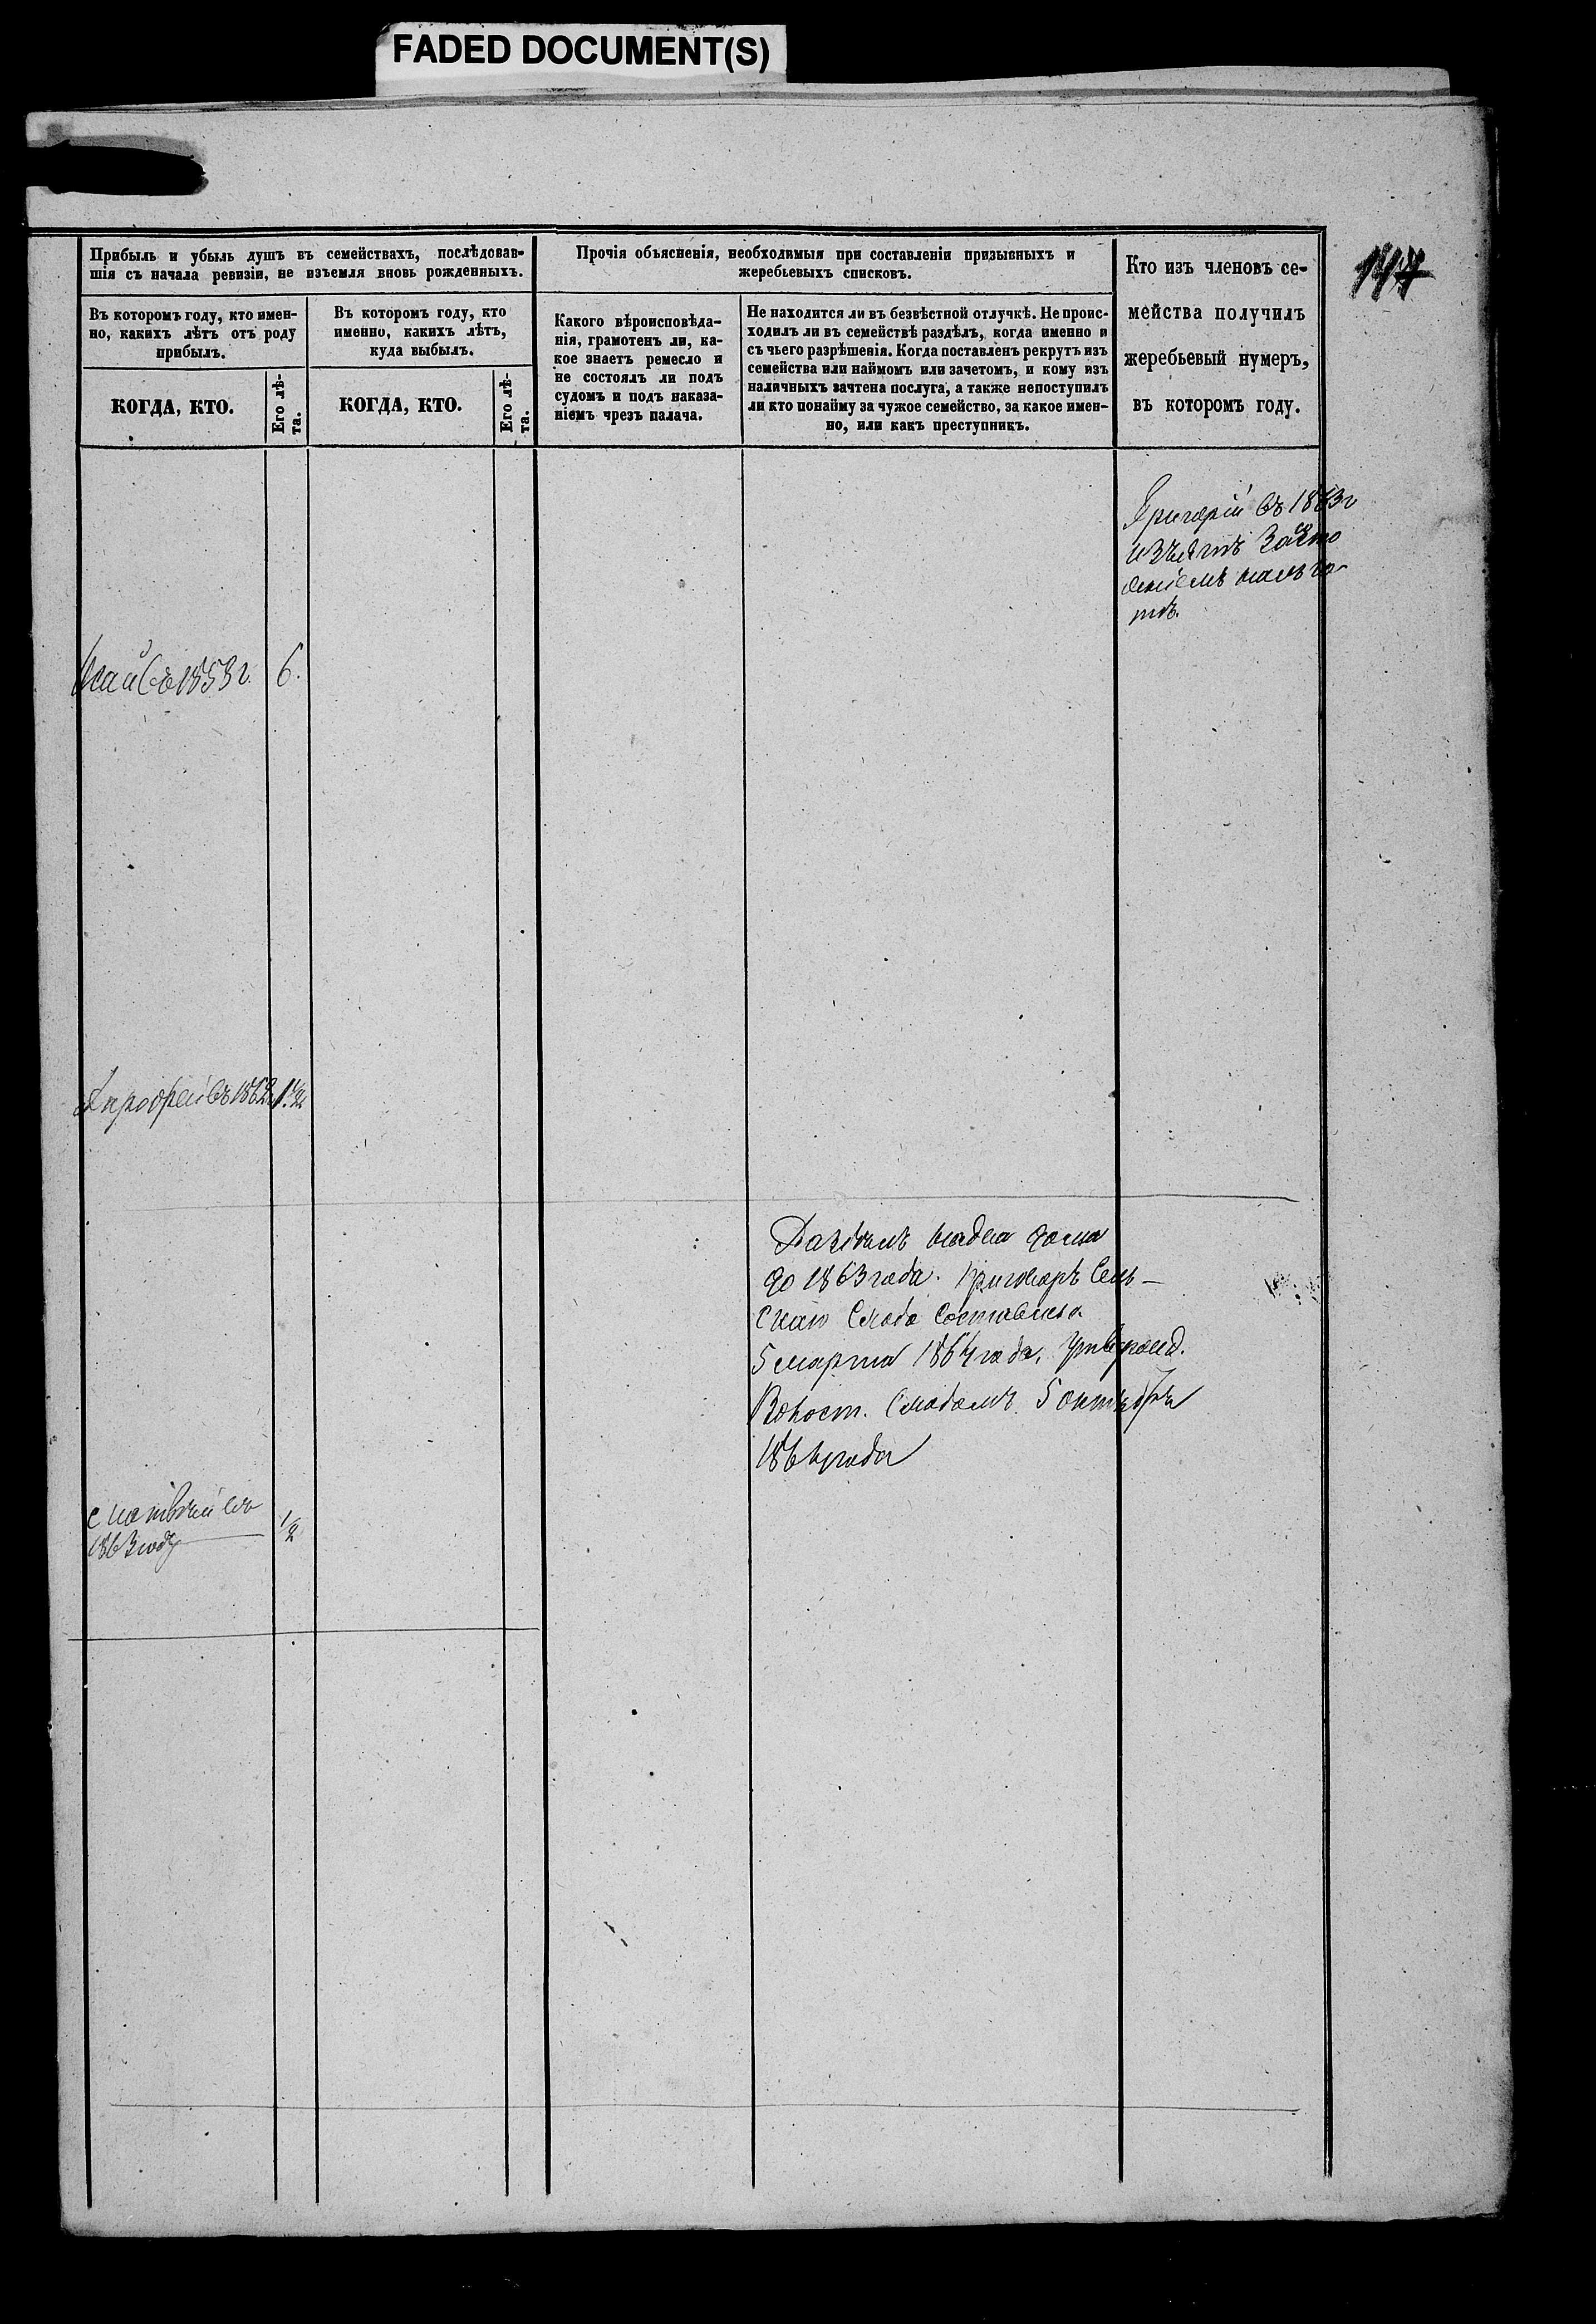 FADED DOCUMENT(S)
Прибыль и убыль душъ въ семействахъ, послѣдовав-
шія съ начала ревизіи, не изъемля вновь рожденныхъ.
Прочія объясненія, необходимыя при составленіи призывныхъ и
жеребьевыхъ списковъ.
Кто изъ членовъ се-
мейства получилъ
жеребьевый нумеръ,
въ которомъ году.
147
Въ которомъ году, кто имен-
но, какихъ лѣтъ отъ роду
прибылъ.
Въ которомъ году, кто
именно, какихъ лѣтъ,
куда выбылъ.
Какого вѣроисповѣда-
нія, грамотенъ ли, ка-
кое знаетъ ремесло и
не состоялъ ли подъ
судомъ и подъ наказа-
ніемъ чрезъ палача.
Не находится ли въ безвѣстной отлучкѣ. Не проис-
ходилъ ли въ семействѣ раздѣлъ, когда именно и
съ чьего разрѣшенія. Когда поставленъ рекрутъ изъ
семейства или наймомъ или зачетомъ, и кому изъ
наличныхъ зачтена послуга, а также непоступилъ
ли кто понайму за чужое семейство, за какое имен-
но, или какъ преступникъ.
КОГДА, КТО.
Его лѣ-
та.
КОГДА, КТО.
Его лѣ-
та.
Григорій въ 1863 г
изъятъ
Исай въ 1853 г. 6.
въ 1862 1½
Раздѣлъ
до 1863 года. Приговоръ Сель-
скаго Схода Составленъ
5 марта 1864 года. Утвержд.
Волост. Сходомъ 5 октября
1864 года
Матвѣй въ ½
1863 году